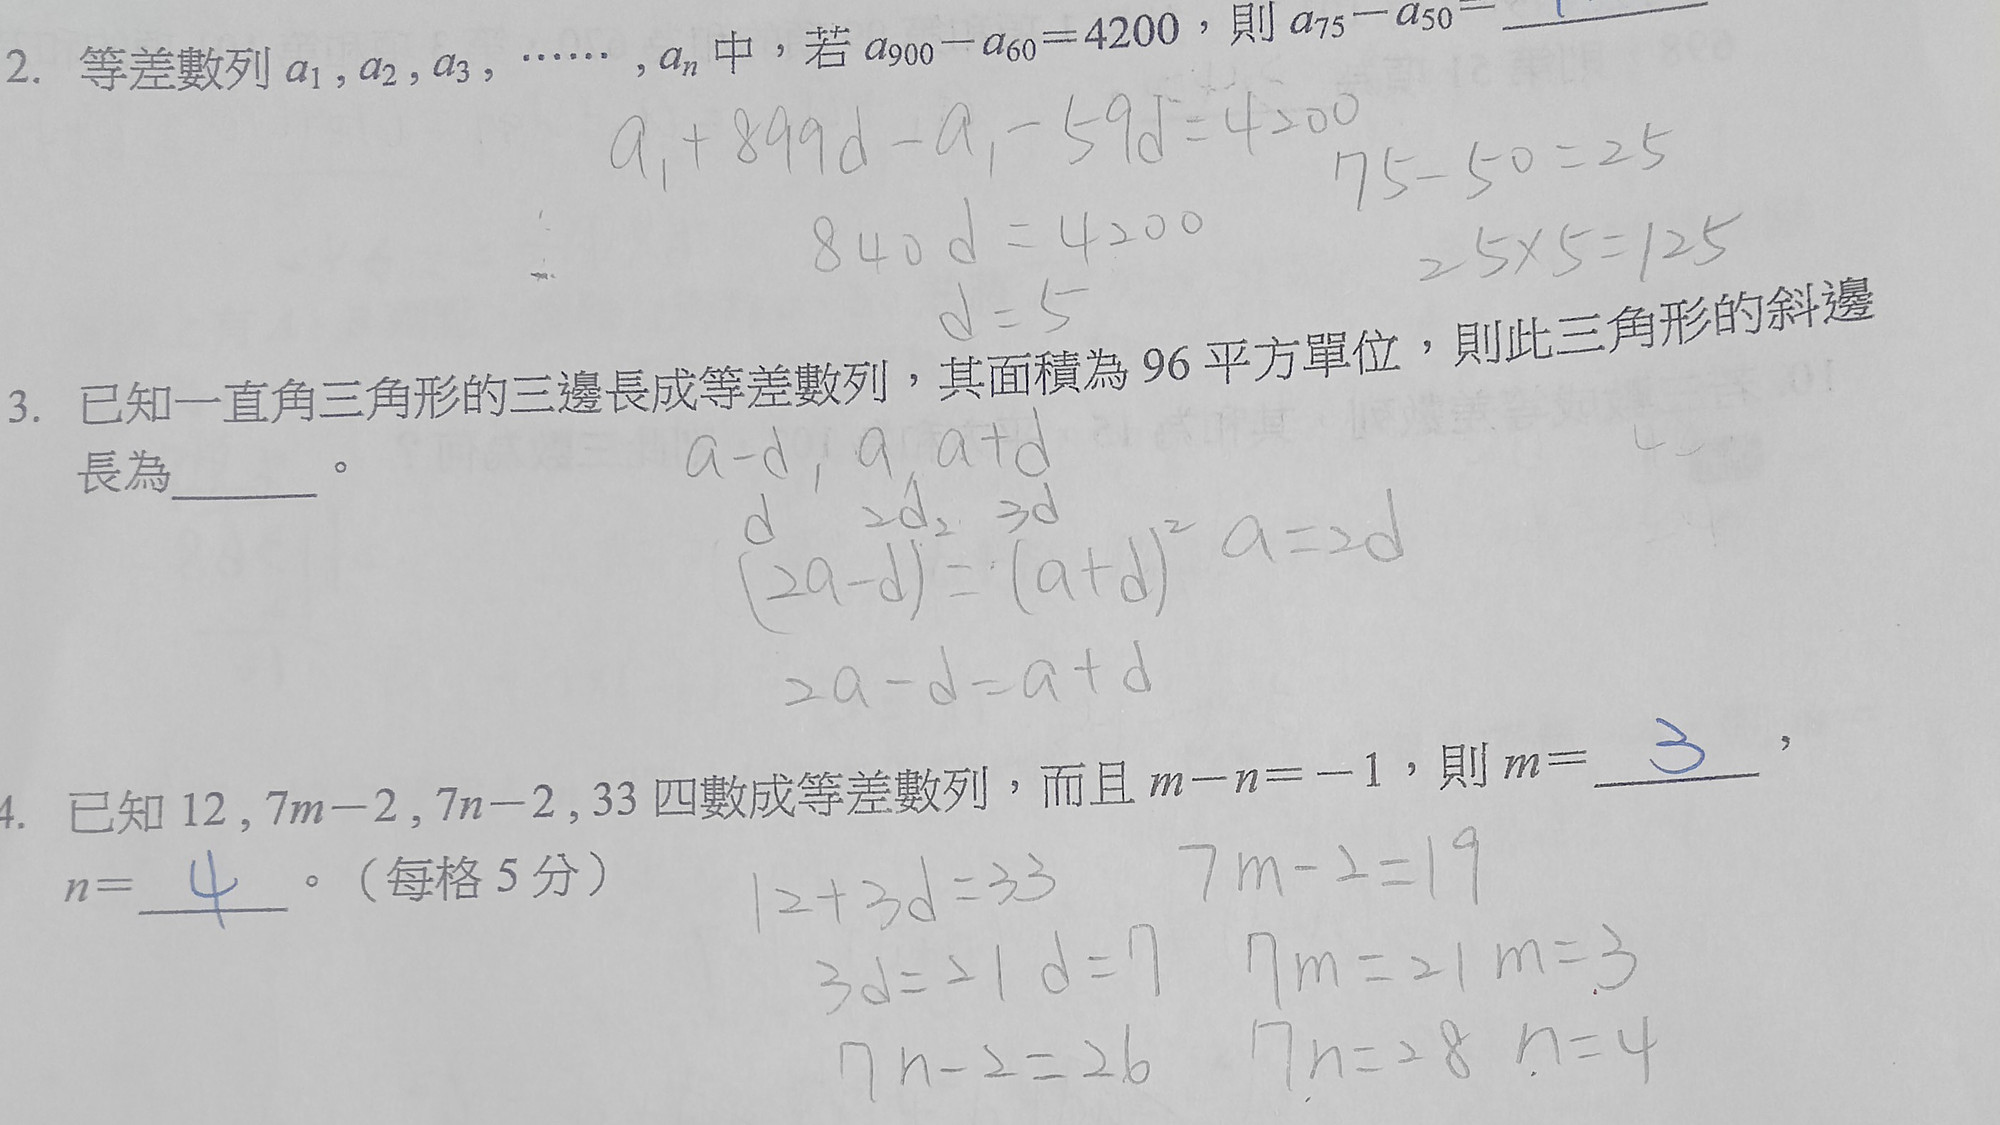 2. 等差數列 a₁ , a₂ , a₃ , …… , aₙ 中，若 a₉₀₀－a₆₀＝4200，則 a₇₅－a₅₀＝
a₁+899d-a₁-59d=4200
75-50=25
840d=4200
25×5=125
d=5
3. 已知一直角三角形的三邊長成等差數列，其面積為 96 平方單位，則此三角形的斜邊
長為______。
a-d, a, a+d
d 2d 3d
(2a-d)²=(a+d)² a=2d
2a-d=a+d
4. 已知 12 , 7m－2 , 7n－2 , 33 四數成等差數列，而且 m－n＝－1，則 m＝ 3 ，
n＝ 4 。（每格 5 分）
12+3d=33 7m-2=19
3d=21 d=7 7m=21 m=3
7n-2=26 7n=28 n=4